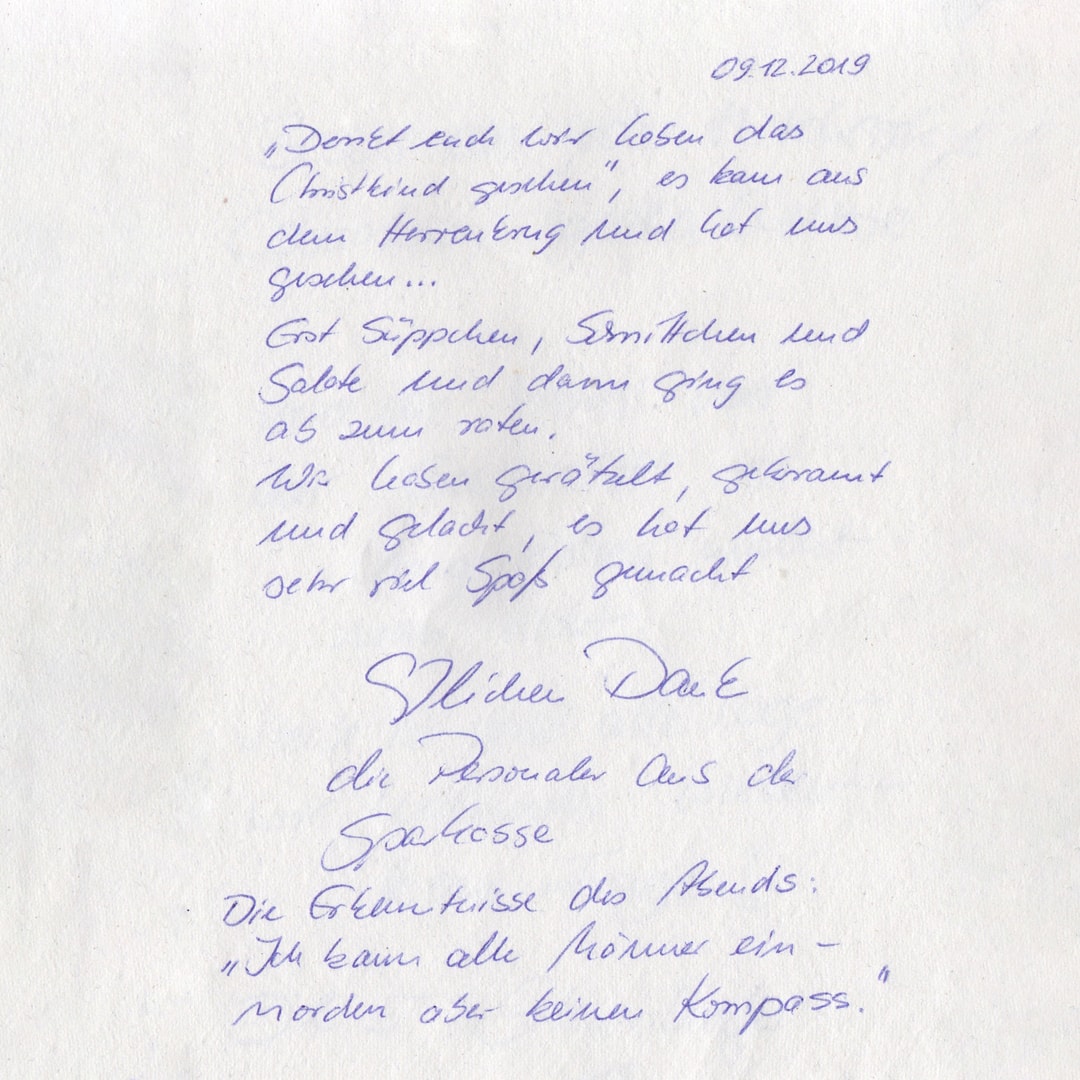 09.12.2019
„Denkt euch wir haben das
Christkind gesehen", es kam aus
dem Herrenkrug und hat uns
gesehen...
Erst Süppchen, Schnittchen und
Salate und dann ging es
ab zum raten.
Wir haben gerätselt, gekramt
und gelacht, es hat uns
sehr viel Spaß gemacht
Dank
die Personaler aus der
Sparkasse
Die Erkenntnisse des Abends:
„Ich kann alle Männer ein-
norden aber keinen Kompass."